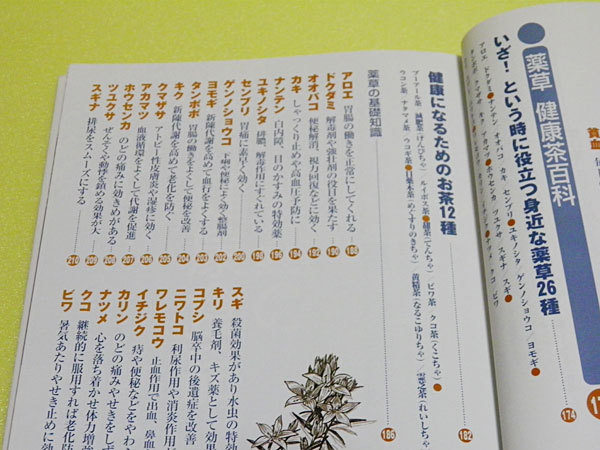 薬草 健康茶百科
いざ！という時に役立つ身近な薬草26種
174
アロエ ドクダミ●ナンテン オオバコ カキ センブリ●ユキノシタ ゲンノショウコ ヨモギ●
健康になるためのお茶12種
182
プーアール茶 減肥茶（げんぴちゃ） ルイボス茶●甜茶（てんちゃ） ビワ茶 クコ茶（くこちゃ）
ウコン茶 ナタマメ茶 ウコギ茶●目薬木茶（めぐすりのきちゃ） 黄精茶（なるこゆりちゃ） 霊芝茶（れいしちゃ
薬草の基礎知識
186
アロエ 胃腸の働きを正常にしてくれる 188
ドクダミ 解毒剤や強壮剤の役目を果たす 190
オオバコ 便秘解消、視力回復などに効く 192
カキ しゃっくり止めや高血圧予防に 194
ナンテン 白内障、目のかすみの特効薬 196
ユキノシタ 排膿、解毒作用にすぐれている 198
センブリ 胃痛に素早く効く
ゲンノショウコ 下痢や便秘にもよく効く整腸剤
ヨモギ 新陳代謝を高めて血行をよくする
タンポポ 胃腸の働きをよくして便秘を改善
キク 新陳代謝を高めて老化を防ぐ
クマザサ アトピー性皮膚炎や湿疹に効く 205
アカマツ 血液循環をよくして代謝を促進 206
ホウセンカ のどの痛みに効きめがある 207
ツユクサ ぜんそくや動悸を鎮める効果が大
スギナ 排尿をスムーズにする 210
スギ 殺菌効果があり水虫の特効
キリ 養毛剤、キズ薬として効果
コブシ 脳卒中の後遺症を改善
ニワトコ 利尿作用や消炎作用が
ワレモコウ 止血作用で出血、鼻血
イチジク 痔や便秘などをやわ
カリン のどの痛みやせきをしず
ナツメ 心を落ち着かせ体力増
クコ 継続的に服用すれば老化防
ビワ 暑気あたりやせき止めに効